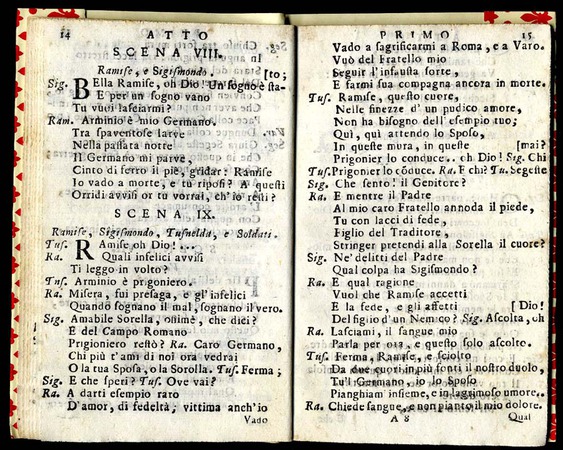 14 ATTO
SCENA VIII.
Ramise, e Sigismondo. [to;
Sig. BElla Ramise, oh Dio! Un sogno è sta-
E per un sogno vano
Tu vuoi lasciarmi?
Ram. Arminio è mio Germano.
Tra spaventose larve
Nella passata notte
Il Germano mi parve,
Cinto di ferro il piè, gridar: Ramise
Io vado a morte, e tu riposi? A questi
Orridi avvisi or tu vorrai, ch'io resti?
SCENA IX.
Ramise, Sigismondo, Tusnelda, e Soldati.
Tus. RAmise oh Dio!...
Ra. Quali infelici avvisi
Ti leggo in volto?
Tus. Arminio è prigoniero.
Ra. Misera, fui presaga, e gl'infelici
Quando sognano il mal, sognano il vero.
Sig. Amabile Sorella, oimè, che dici?
E del Campo Romano
Prigioniero restò? Ra. Caro Germano,
Chi più t'ami di noi ora vedrai
O la tua Sposa, o la Sorolla. Tus. Ferma;
Sig. E che speri? Tus. Ove vai?
Ra. A darti esempio raro
D'amor, di fedeltà; vittima anch'io
Vado
PRIMO 15
Vado a sagrificarmi a Roma, e a Varo.
Vuò del Fratello mio
Seguir l'infausta sorte,
E farmi sua compagna ancora in morte.
Tus. Ramise, questo cuore,
Nelle finezze d' un pudico amore,
Non ha bisogno dell'esempio tuo;
Quì, quì attendo lo Sposo,
In queste mura, in queste [mai?
Prigonier lo conduce.. oh Dio! Sig. Chi
Tus. Prigonier lo cõduce. Ra. E chi? Tu. Segeste
Sig. Che sento! il Genitore?
Ra. E mentre il Padre
Al mio caro Fratello annoda il piede,
Tu con lacci di fede,
Figlio del Traditore,
Stringer pretendi alla Sorella il cuore?
Sig. Ne' delitti del Padre
Qual colpa ha Sigismondo?
Ra. E qual ragione
Vuol che Ramise accetti
E la fede, e gli affetti [Dio!
Del figlio d'un Nemico? Sig. Ascolta, oh
Ra. Lasciami, il sangue mio
Parla per ora, e questo solo ascolto.
Tus. Ferma, Ramise, e sciolto
Da due cuori in più fonti il nostro duolo,
Tu'l Germano, io lo Sposo
Pianghiam insieme, e in lagrimoso umore..
Ra. Chiede sangue, e non pianto il mio dolore.
A 8 Qual